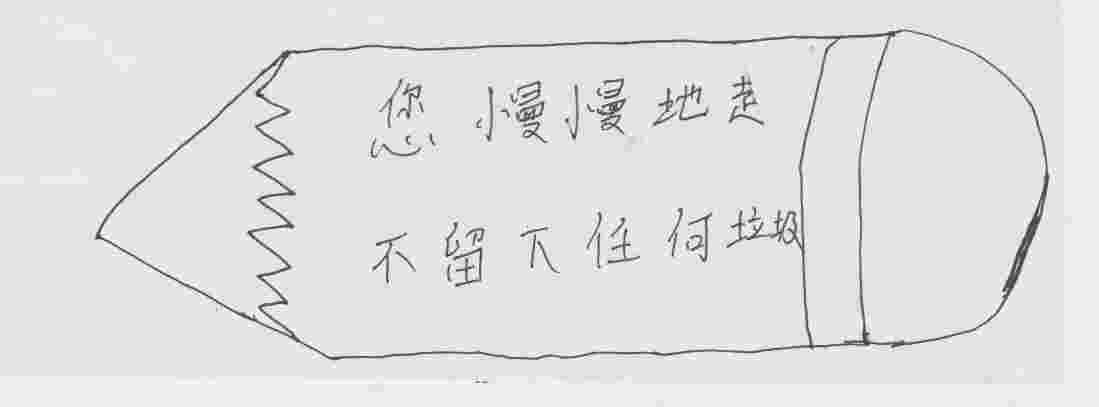 您慢慢地走
不留下任何垃圾